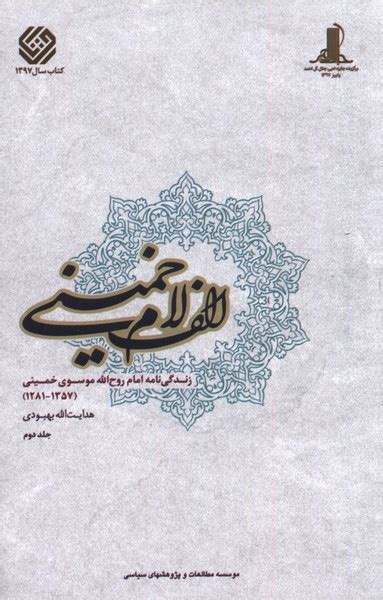 برگزیده جایزه ادبی جلال آل احمد
پاییز ۱۳۹۷
کتاب سال ۱۳۹۷
الف لام خمینی
زندگی‌نامه امام روح‌الله موسوی خمینی
(۱۲۸۱-۱۳۵۷)
هدایت‌الله بهبودی
جلد دوم
موسسه مطالعات و پژوهشهای سیاسی